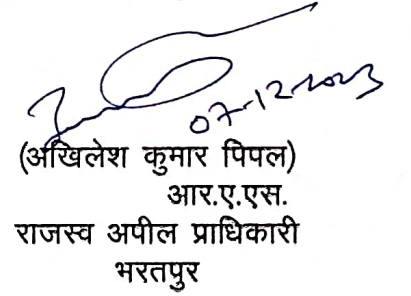 07-12-2023
(अखिलेश कुमार पिपल)
आर.ए.एस.
राजस्व अपील प्राधिकारी
भरतपुर